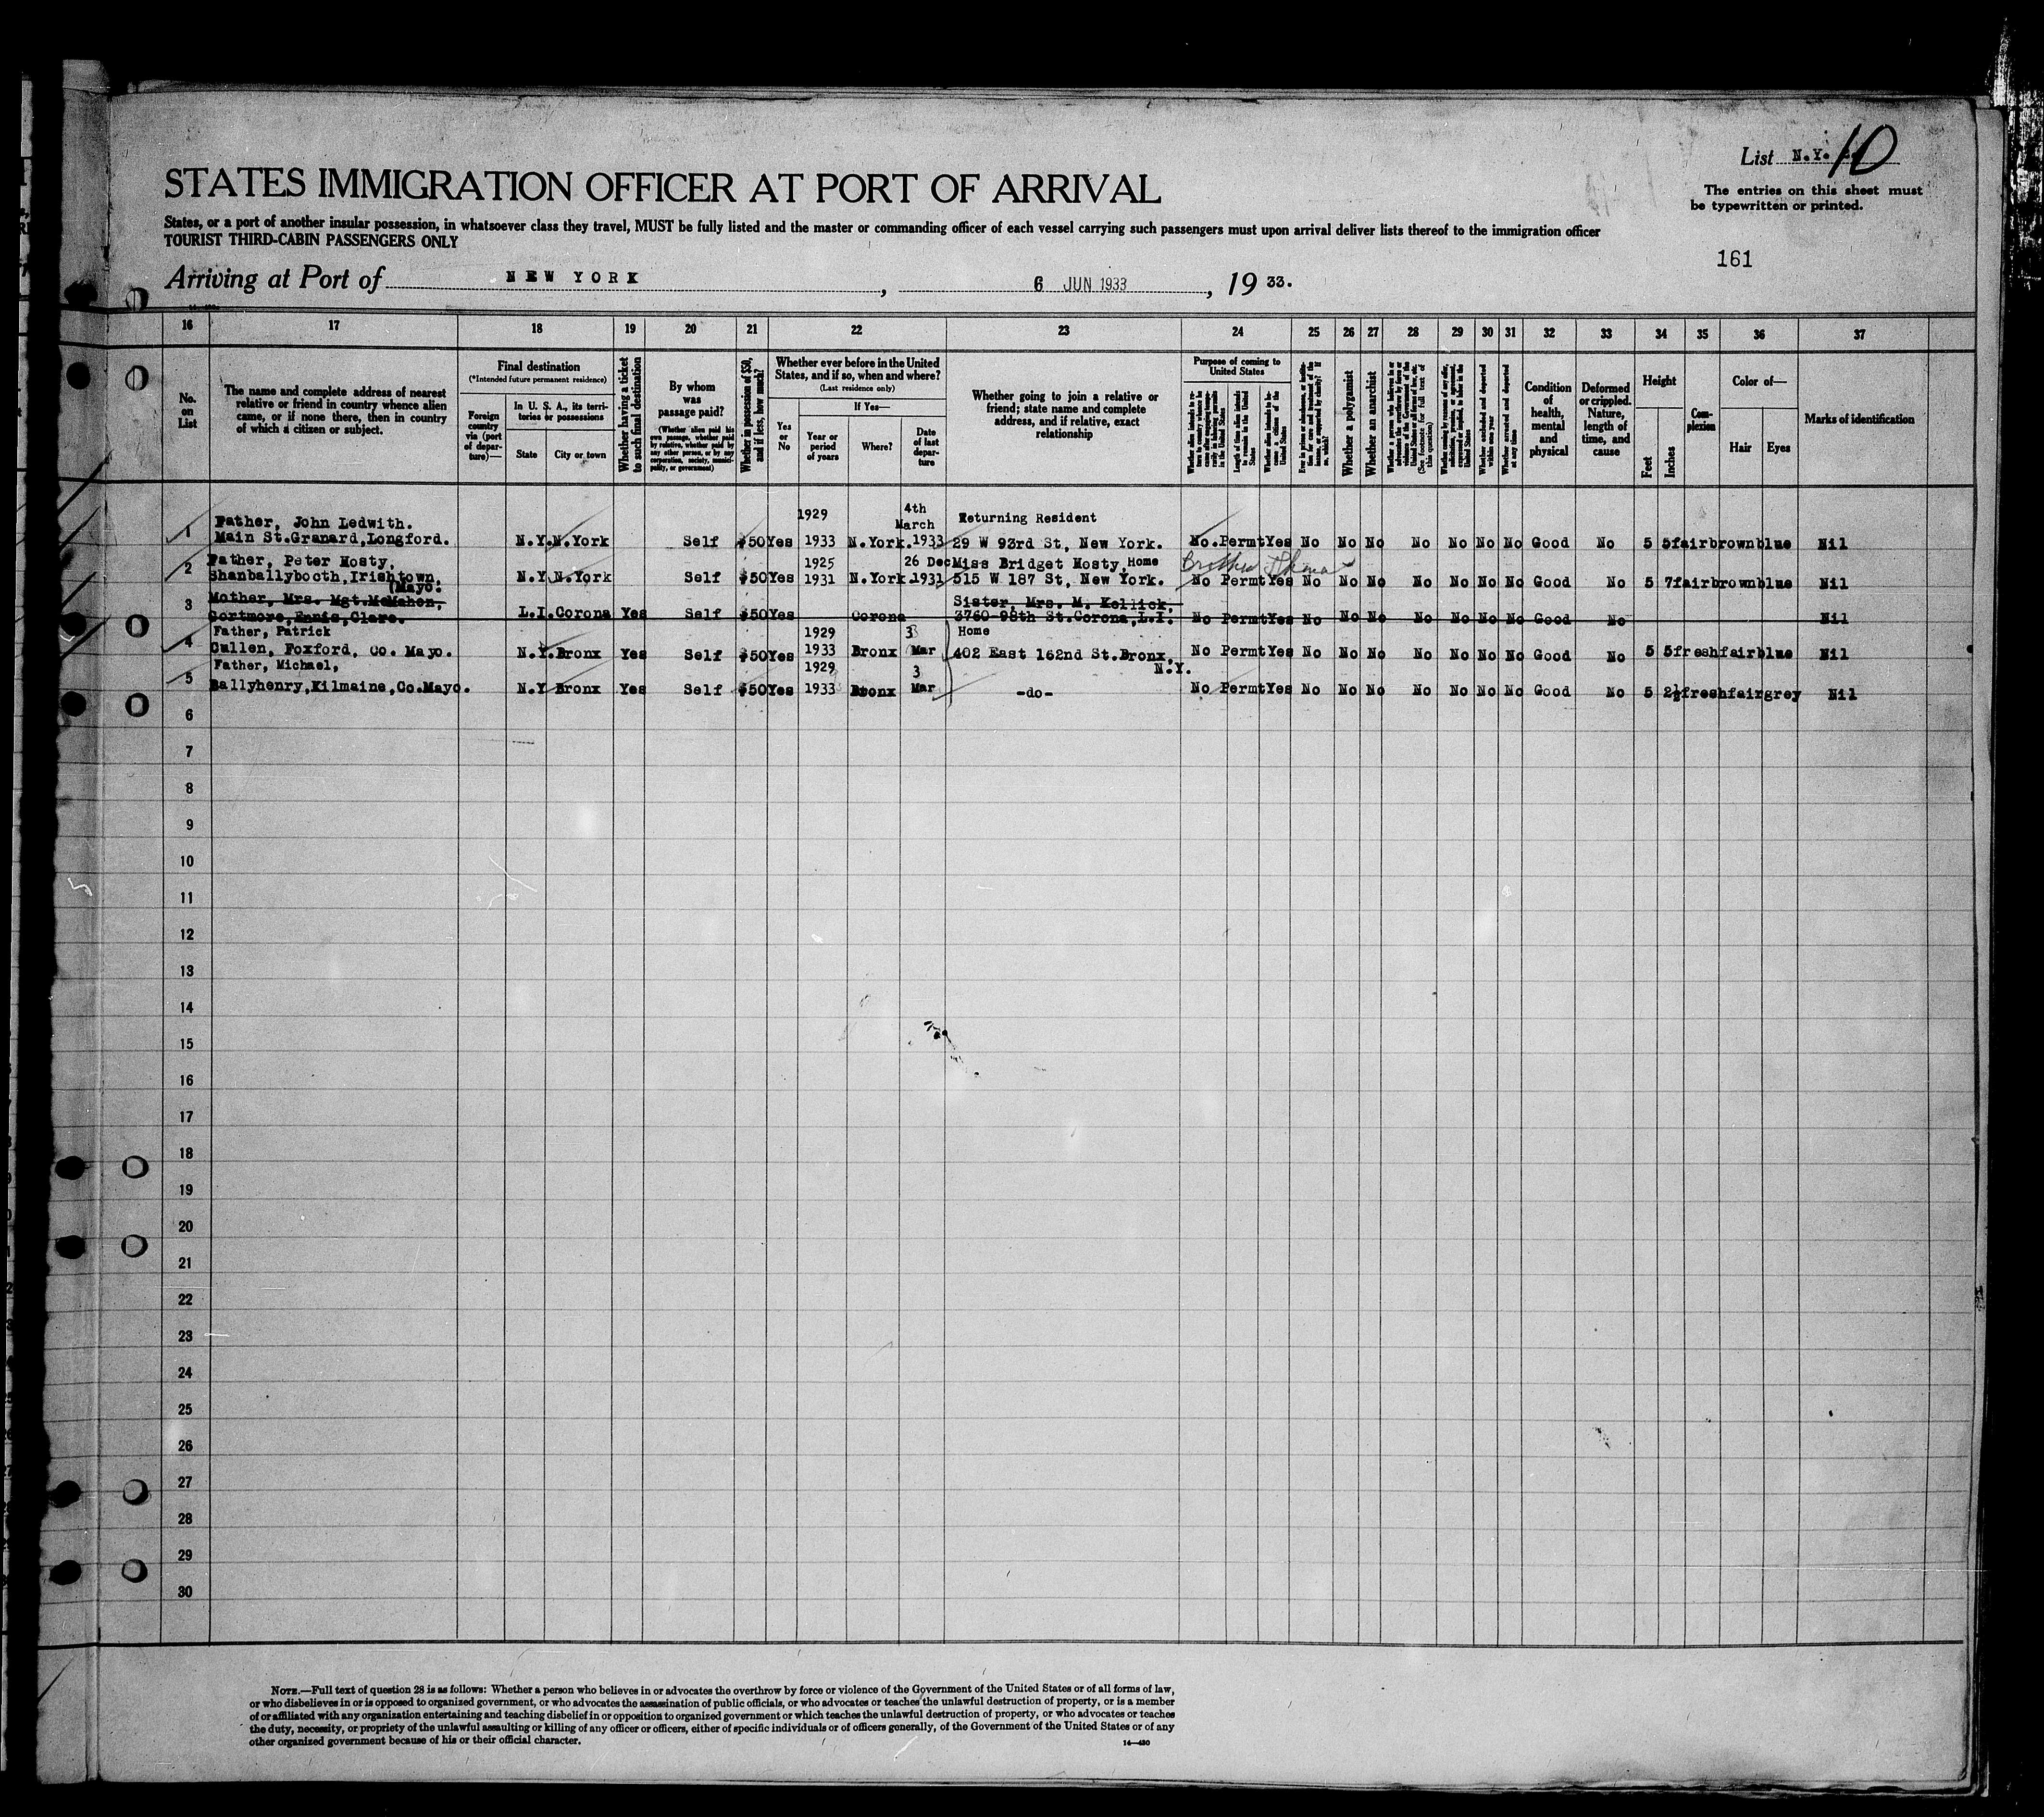 List N.Y. 10
STATES IMMIGRATION OFFICER AT PORT OF ARRIVAL
The entries on this sheet must
be typewritten or printed.
States, or a port of another insular possession, in whatsoever class they travel, MUST be fully listed and the master or commanding officer of each vessel carrying such passengers must upon arrival deliver lists thereof to the immigration officer
TOURIST THIRD-CABIN PASSENGERS ONLY
161
Arriving at Port of NEW YORK, 6 JUN 1933, 19 33.
16 17 18 19 20 21 22 23 24 25 26 27 28 29 30 31 32 33 34 35 36 37
No. on List
The name and complete address of nearest
relative or friend in country whence alien
came, or if none there, then in country
of which a citizen or subject.
Final destination
(*Intended future permanent residence)
Foreign country via (port of departure)—
In U. S. A., its territories or possessions
State
City or town
Whether having a ticket to such final destination
By whom was passage paid?
(Whether alien paid his own passage, whether paid by relative, whether paid by any other person, or by any corporation, society, municipality, or government)
Whether in possession of $50, and if less, how much?
Whether ever before in the United
States, and if so, when and where?
(Last residence only)
If Yes—
Yes or No
Year or period of years
Where?
Date of last departure
Whether going to join a relative or
friend; state name and complete
address, and if relative, exact
relationship
Purpose of coming to United States
Whether a polygamist
Whether an anarchist
Whether excluded and deported within one year
Whether arrested and deported at any time
Condition of health, mental and physical
Deformed or crippled. Nature, length of time, and cause
Height
Feet
Inches
Complexion
Color of—
Hair
Eyes
Marks of identification
1 Father, John Ledwith. 1929 4th March Returning Resident
Main St.Granard,Longford. N.Y. N.York Self $50 Yes 1933 N.York. 1933 29 W 93rd St, New York. No. Permt Yes No No No No No No No Good No 5 5 fair brown blue Nil
2 Father, Peter Mosty, 1925 26 Dec Miss Bridget Mosty, Home Brother
Shanballybocth, Irishtown, N.Y. N.York Self $50 Yes 1931 N.York. 1931 515 W 187 St, New York. No Permt Yes No No No No No No No Good No 5 7 fair brown blue Nil
(Mayo.
3 Mother, Mrs. Mgt.McMahon, Sister, Mrs. M. Kellick,
Gortmore, Ennis, Clare. L.I. Corona Yes Self $50 Yes Corona 3760 98th St. Corona, L.I. No Permt Yes No No No No No No No Good No Nil
4 Father, Patrick 1929 3 Home
Cullen, Foxford, Co. Mayo. N.Y. Bronx Yes Self $50 Yes 1933 Bronx Mar 402 East 162nd St.Bronx, N.Y. No Permt Yes No No No No No No No Good No 5 5 fresh fair blue Nil
5 Father, Michael, 1929 3
Ballyhenry,Kilmaine,Co.Mayo. N.Y Bronx Yes Self $50 Yes 1933 Bronx Mar -do- No Permt Yes No No No No No No No Good No 5 2½ fresh fair grey Nil
6
7
8
9
10
11
12
13
14
15
16
17
18
19
20
21
22
23
24
25
26
27
28
29
30
NOTE.—Full text of question 28 is as follows: Whether a person who believes in or advocates the overthrow by force or violence of the Government of the United States or of all forms of law,
or who disbelieves in or is opposed to organized government, or who advocates the assassination of public officials, or who advocates or teaches the unlawful destruction of property, or is a member
of or affiliated with any organization entertaining and teaching disbelief in or opposition to organized government or which teaches the unlawful destruction of property, or who advocates or teaches
the duty, necessity, or propriety of the unlawful assaulting or killing of any officer or officers, either of specific individuals or of officers generally, of the Government of the United States or of any
other organized government because of his or their official character.
14—480